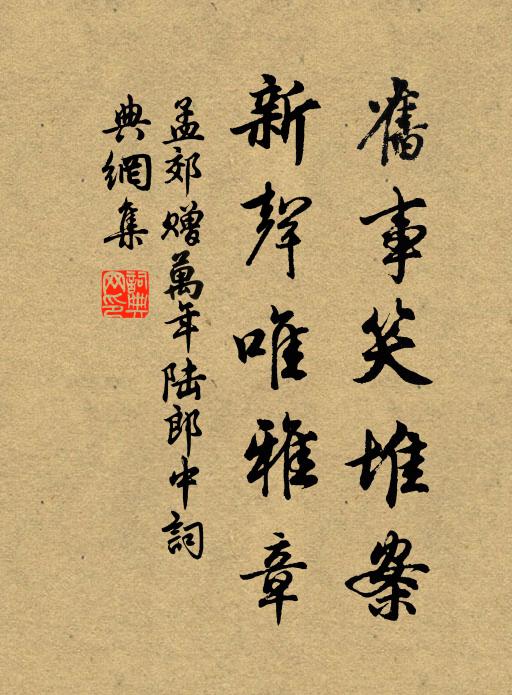 舊事笑堆案
新聲唯雅章
孟郊贈萬年陸郎中詞
典網集
詞典網印